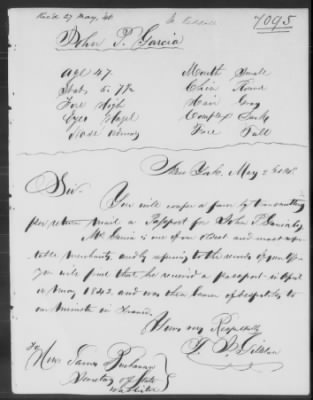 Rec'd 27 May, 48
7095
John P. Garcia
Age 47
Stats 5. 7½
Fore High
Eyes Hazel
Nose Ordinary
Mouth Small
Chin Round
Hair Grey
Complex Dark
Face Full
New York, May 2
Sir.
You will confer a favor by transmitting
pr return mail a Passport for John P. Garcia Esq
Mr Garcia is one of our oldest and most respec
table merchants, and by referring to the records of your Office
you will find that he received a passport in April
or May 1842, and was then bearer of despatches to
our minister in France.
Yours very Respectfully
Gibson
To
Hon. James Buchanan
Secretary of State
Washington